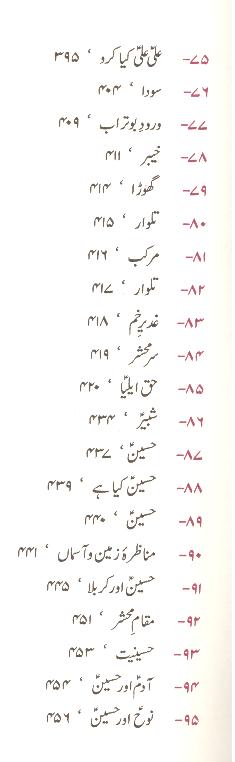 ۷۵- علیؑ علیؑ کیا کرو ، ۳۹۵
۷۶- سودا ، ۴۰۴
۷۷- ورودِ بوتراب ، ۴۰۹
۷۸- خیبر ، ۴۱۱
۷۹- گھوڑا ، ۴۱۴
۸۰- تلوار ، ۴۱۵
۸۱- مرکب ، ۴۱۶
۸۲- تلوار ، ۴۱۷
۸۳- غدیرِ خم ، ۴۱۸
۸۴- سرِ محشر ، ۴۱۹
۸۵- حق ایلیّا ، ۴۲۰
۸۶- شبیرؑ ، ۴۳۴
۸۷- حسینؑ ، ۴۳۷
۸۸- حسینؑ کیا ہے ، ۴۳۹
۸۹- حسینؑ ، ۴۴۰
۹۰- مناظرۂ زمین و آسماں ، ۴۴۱
۹۱- حسینؑ اور کربلا ، ۴۴۵
۹۲- مقامِ محشر ، ۴۵۱
۹۳- حسینیت ، ۴۵۳
۹۴- آدمؑ اور حسینؑ ، ۴۵۴
۹۵- نوحؑ اور حسینؑ ، ۴۵۶